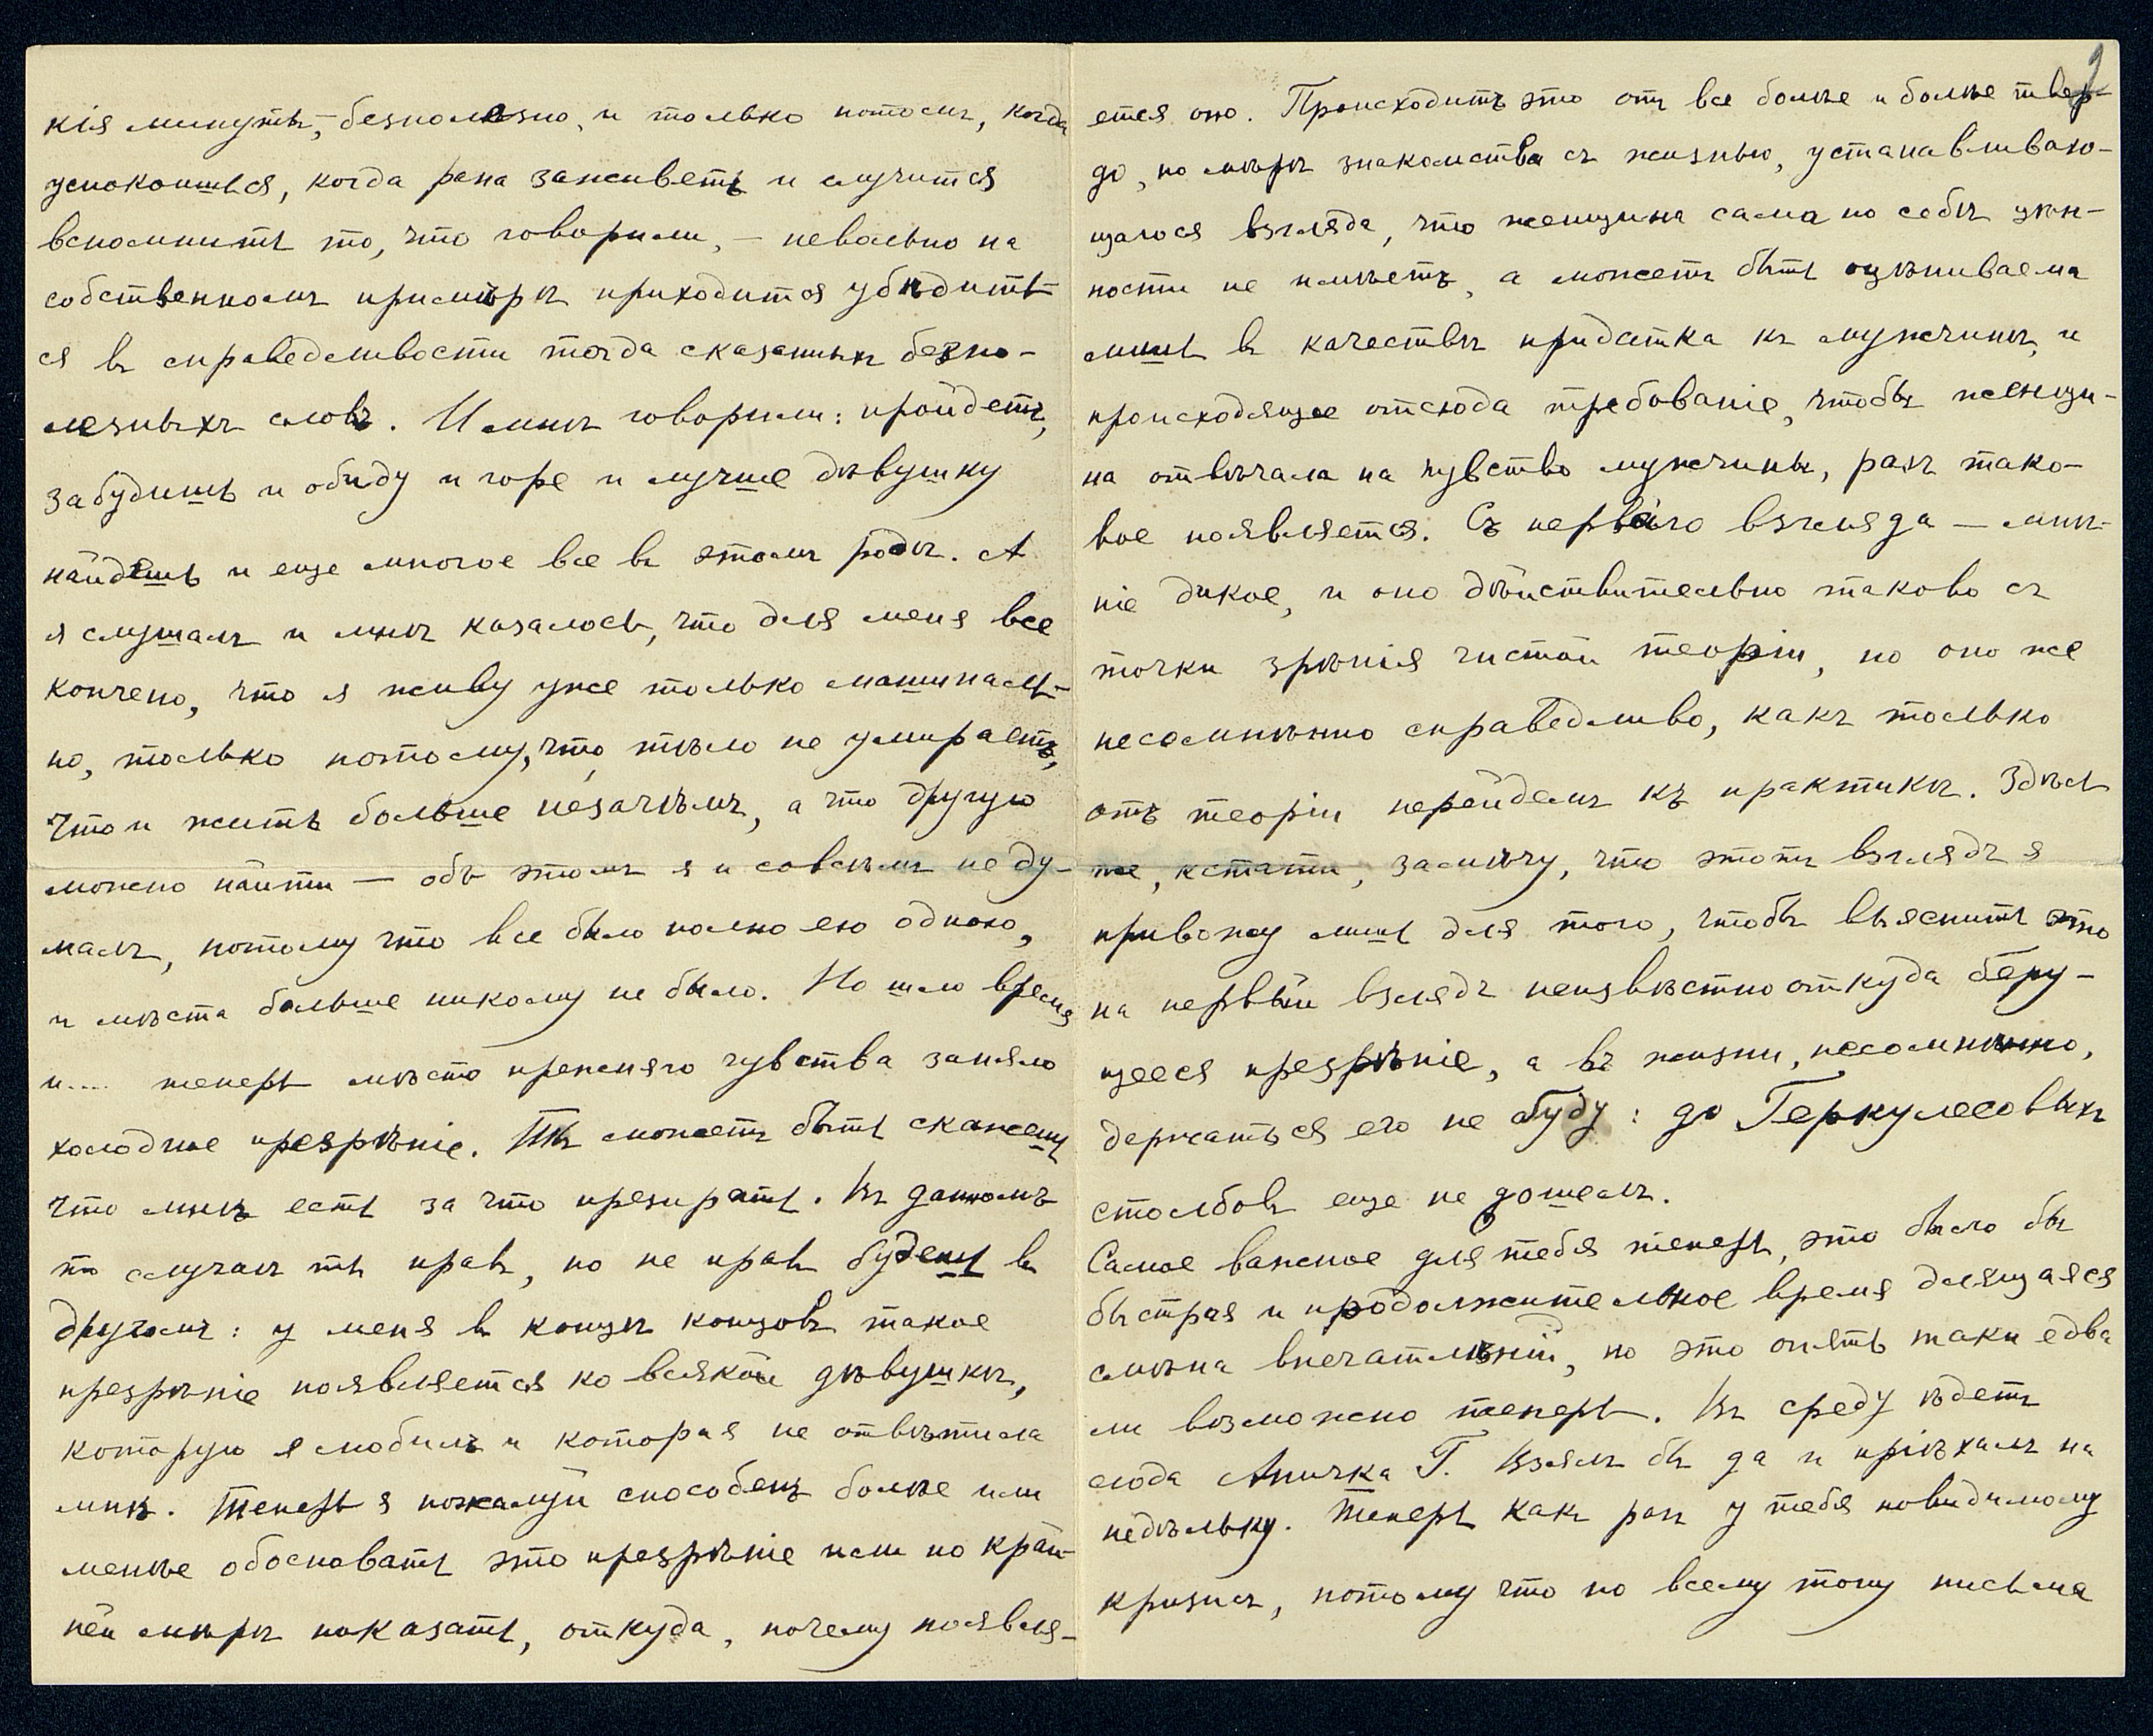 кія минуты,- безполезно, и только потомъ, когда
успокоишься, когда рана заживетъ и случится
вспомнить то, что говорили, - невольно на
собственномъ примѣрѣ приходится убѣдить-
ся въ справедливости тогда сказанныхъ безпо-
лезныхъ словъ. И мнѣ говорили: пройдетъ,
забудишь и обиду и горе и лучше дѣвушку
найдешь и еще многое все въ этомъ родѣ. А
я слушалъ и мнѣ казалось, что для меня все
кончено, что я живу уже только машиналь-
но, только потому, что тѣло не умираетъ,
что и жить больше незачѣмъ, а что другую
можно найти — объ этомъ я и совсѣмъ не ду-
малъ, потому что все было полно ею одною,
и мѣста больше никому не было. Но шло время
и.... теперь мѣсто прежняго чувства заняло
холодное презрѣніе. Ты можетъ быть скажешь
что мнѣ есть за что презирать. Въ данномъ
то случаѣ ты правъ, но не правъ будешь въ
другомъ: у меня въ концѣ концовъ такое
презрѣніе появляется ко всякой дѣвушкѣ,
которую я любилъ и которая не отвѣтила
мнѣ. Теперь я пожалуй способенъ болѣе или
менѣе обосновать это презрѣніе или по край-
ней мѣрѣ показать, откуда, почему появля-
2
ется оно. Происходитъ это отъ все болѣе и болѣе твер-
до, по мѣрѣ знакомства съ жизнью, устанавливаю-
щагося взгляда, что женщина сама по себѣ цѣн-
ности не имѣетъ, а можетъ быть оцѣниваема
лишь въ качествѣ придатка къ мужчинѣ, и
происходящее отсюда требованіе, чтобы женщи-
на отвѣчала на чувство мужчины, разъ тако-
вое появляется. Съ перваго взгляда — мнѣ-
ніе дикое, и оно дѣйствительно таково съ
точки зрѣнія чистой теоріи, но оно же
несомнѣнно справедливо, какъ только
отъ теоріи перейдемъ къ практикѣ. Здѣсь
же, кстати, замѣчу, что этотъ взглядъ я
привожу лишь для того, чтобы выяснить это
на первый взглядъ неизвѣстно откуда беру-
щееся презрѣніе, а въ жизни, несомнѣнно,
держаться его не буду: до Геркулесовыхъ
столбовъ еще не дошелъ.
Самое важное для тебя теперь, это было бы
быстрая и продолжительное время длящаяся
смѣна впечатлѣній, но это опять таки едва
ли возможно теперь. Въ среду ѣдетъ
сюда Аничка Г. Взялъ бы да и пріѣхалъ на
недѣльку. Теперь какъ разъ у тебя повидимому
кризисъ, потому что по всему тону письма